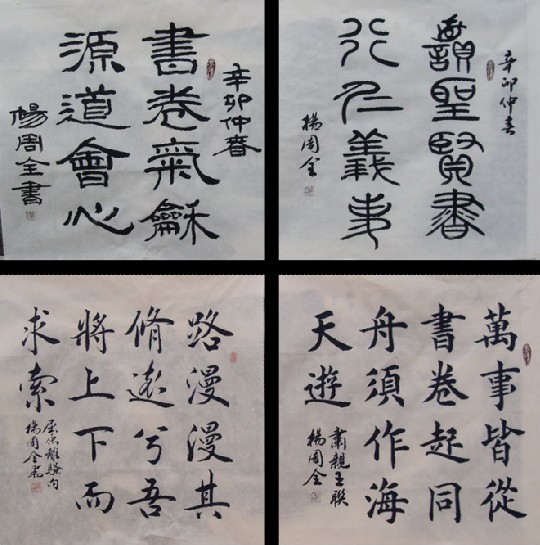 辛卯仲春
書卷氣龢
源道會心
楊周全書
辛卯仲春
讀聖賢書
行仁義事
楊周全
路漫漫其
脩遠兮吾
將上下而
求索
屈原離騷句
楊周全書
萬事皆從
書卷起同
舟須作海
天遊
肅親王聯
楊周全